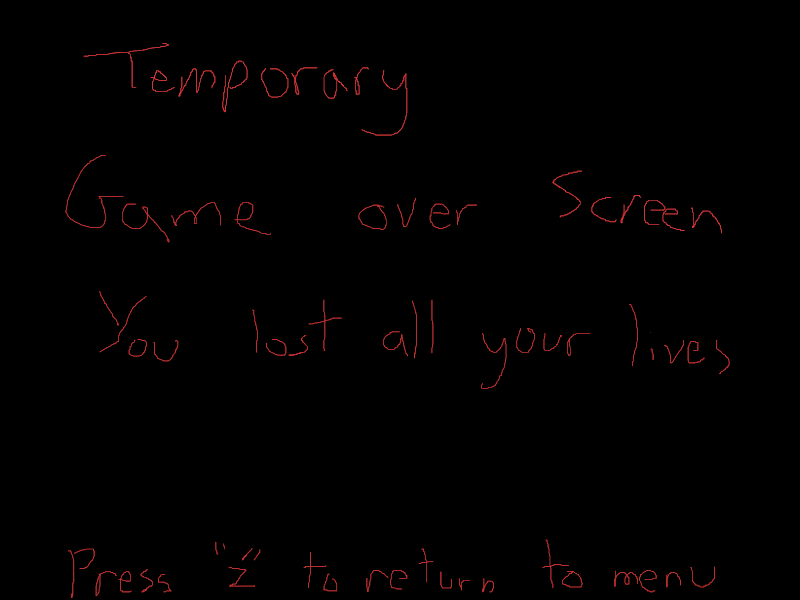 Temporary
Game over Screen
You lost all your lives
Press "z" to return to menu